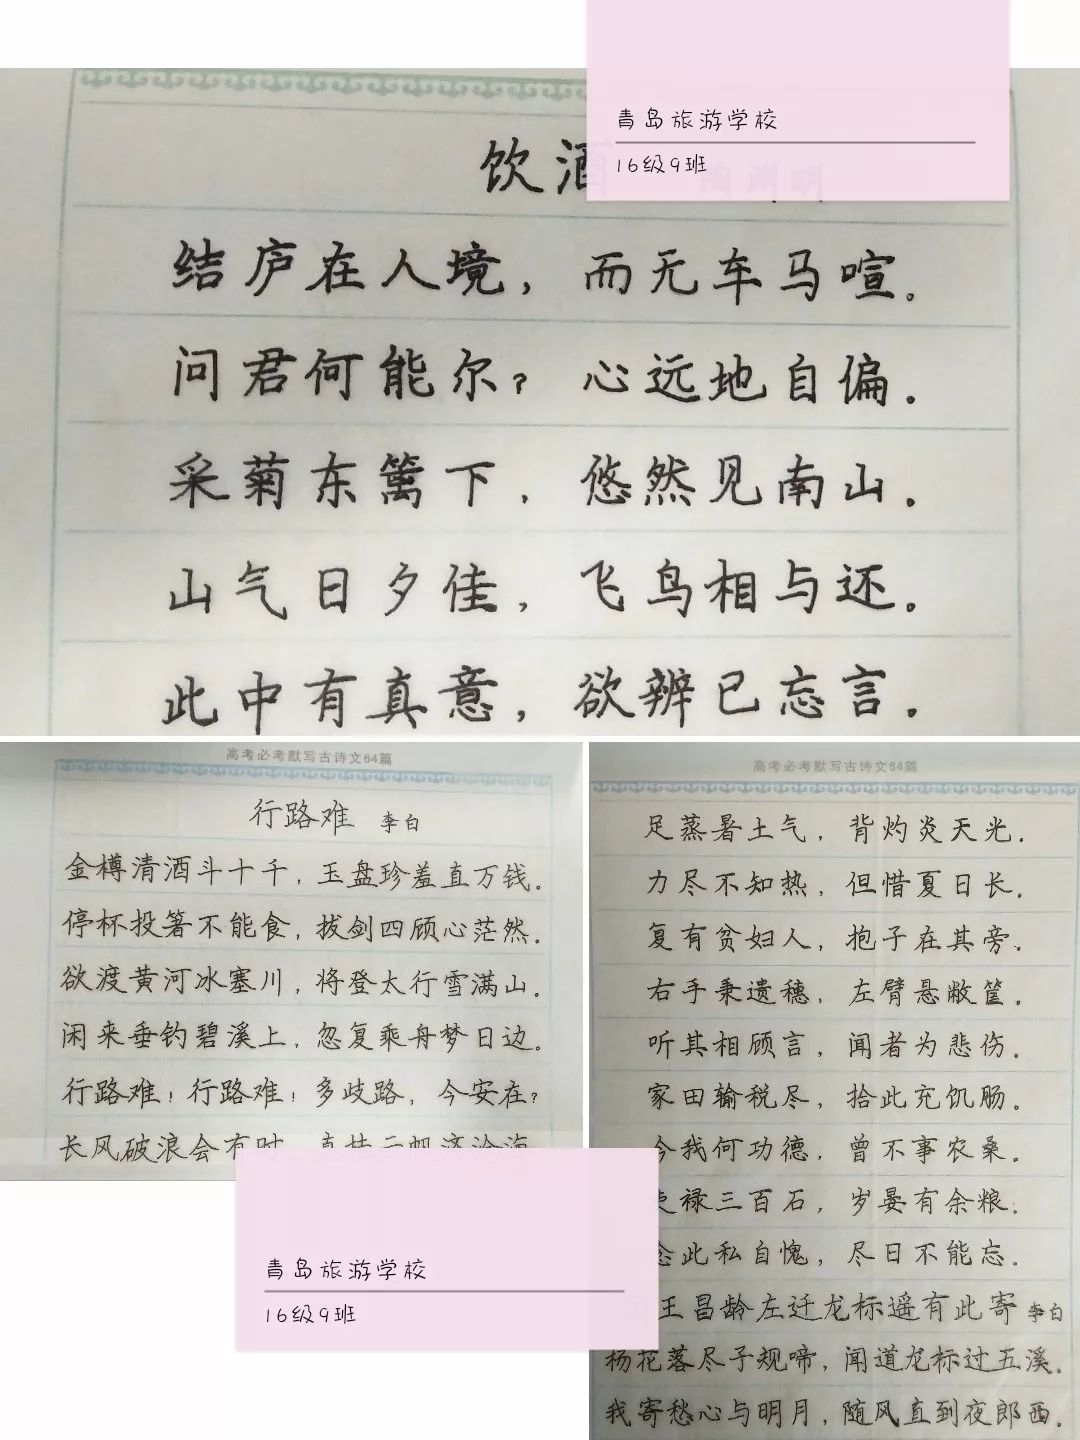 青岛旅游学校
16级9班
饮酒 陶渊明
结庐在人境，而无车马喧。
问君何能尔？心远地自偏。
采菊东篱下，悠然见南山。
山气日夕佳，飞鸟相与还。
此中有真意，欲辨已忘言。
高考必考默写古诗文64篇
行路难 李白
金樽清酒斗十千，玉盘珍羞直万钱。
停杯投箸不能食，拔剑四顾心茫然。
欲渡黄河冰塞川，将登太行雪满山。
闲来垂钓碧溪上，忽复乘舟梦日边。
行路难！行路难！多歧路，今安在？
长风破浪会有时，直挂云帆济沧海
青岛旅游学校
16级9班
高考必考默写古诗文64篇
足蒸暑土气，背灼炎天光。
力尽不知热，但惜夏日长。
复有贫妇人，抱子在其旁。
右手秉遗穗，左臂悬敝筐。
听其相顾言，闻者为悲伤。
家田输税尽，拾此充饥肠。
今我何功德，曾不事农桑。
吏禄三百石，岁晏有余粮。
念此私自愧，尽日不能忘。
王昌龄左迁龙标遥有此寄 李白
杨花落尽子规啼，闻道龙标过五溪。
我寄愁心与明月，随风直到夜郎西。